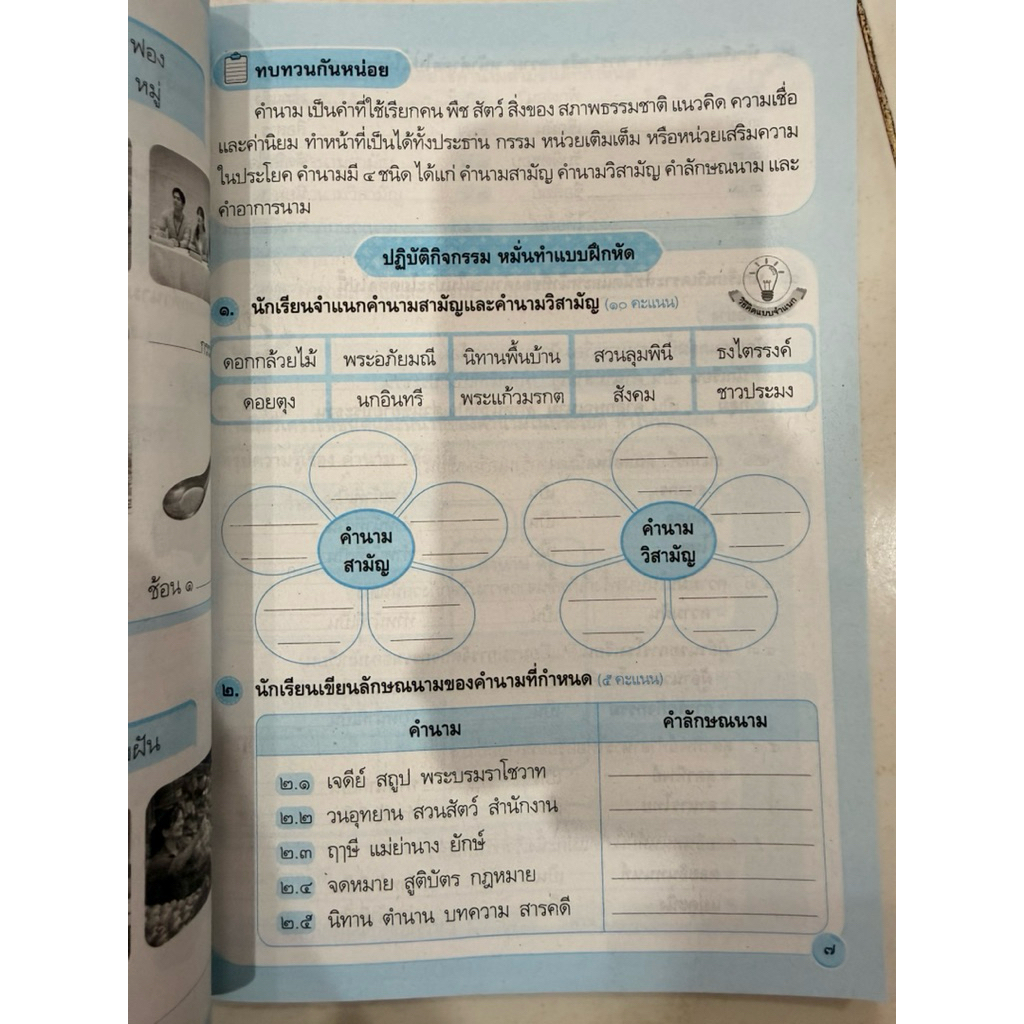 ฟอง
หมู่
ช้อน ๑
ทบทวนกันหน่อย
คำนาม เป็นคำที่ใช้เรียกคน พืช สัตว์ สิ่งของ สภาพธรรมชาติ แนวคิด ความเชื่อ
และค่านิยม ทำหน้าที่เป็นได้ทั้งประธาน กรรม หน่วยเติมเต็ม หรือหน่วยเสริมความ
ในประโยค คำนามมี ๔ ชนิด ได้แก่ คำนามสามัญ คำนามวิสามัญ คำลักษณนาม และ
คำอาการนาม
ปฏิบัติกิจกรรม หมั่นทำแบบฝึกหัด
วิธีคิดแบบจำแนก
๑. นักเรียนจำแนกคำนามสามัญและคำนามวิสามัญ (๑๐ คะแนน)
ดอกกล้วยไม้ พระอภัยมณี นิทานพื้นบ้าน สวนลุมพินี ธงไตรรงค์
ดอยตุง นกอินทรี พระแก้วมรกต สังคม ชาวประมง
คำนาม
สามัญ
คำนาม
วิสามัญ
๒. นักเรียนเขียนลักษณนามของคำนามที่กำหนด (๕ คะแนน)
คำนาม คำลักษณนาม
๒.๑ เจดีย์ สถูป พระบรมราโชวาท
๒.๒ วนอุทยาน สวนสัตว์ สำนักงาน
๒.๓ ฤๅษี แม่ย่านาง ยักษ์
๒.๔ จดหมาย สูติบัตร กฎหมาย
๒.๕ นิทาน ตำนาน บทความ สารคดี
๗